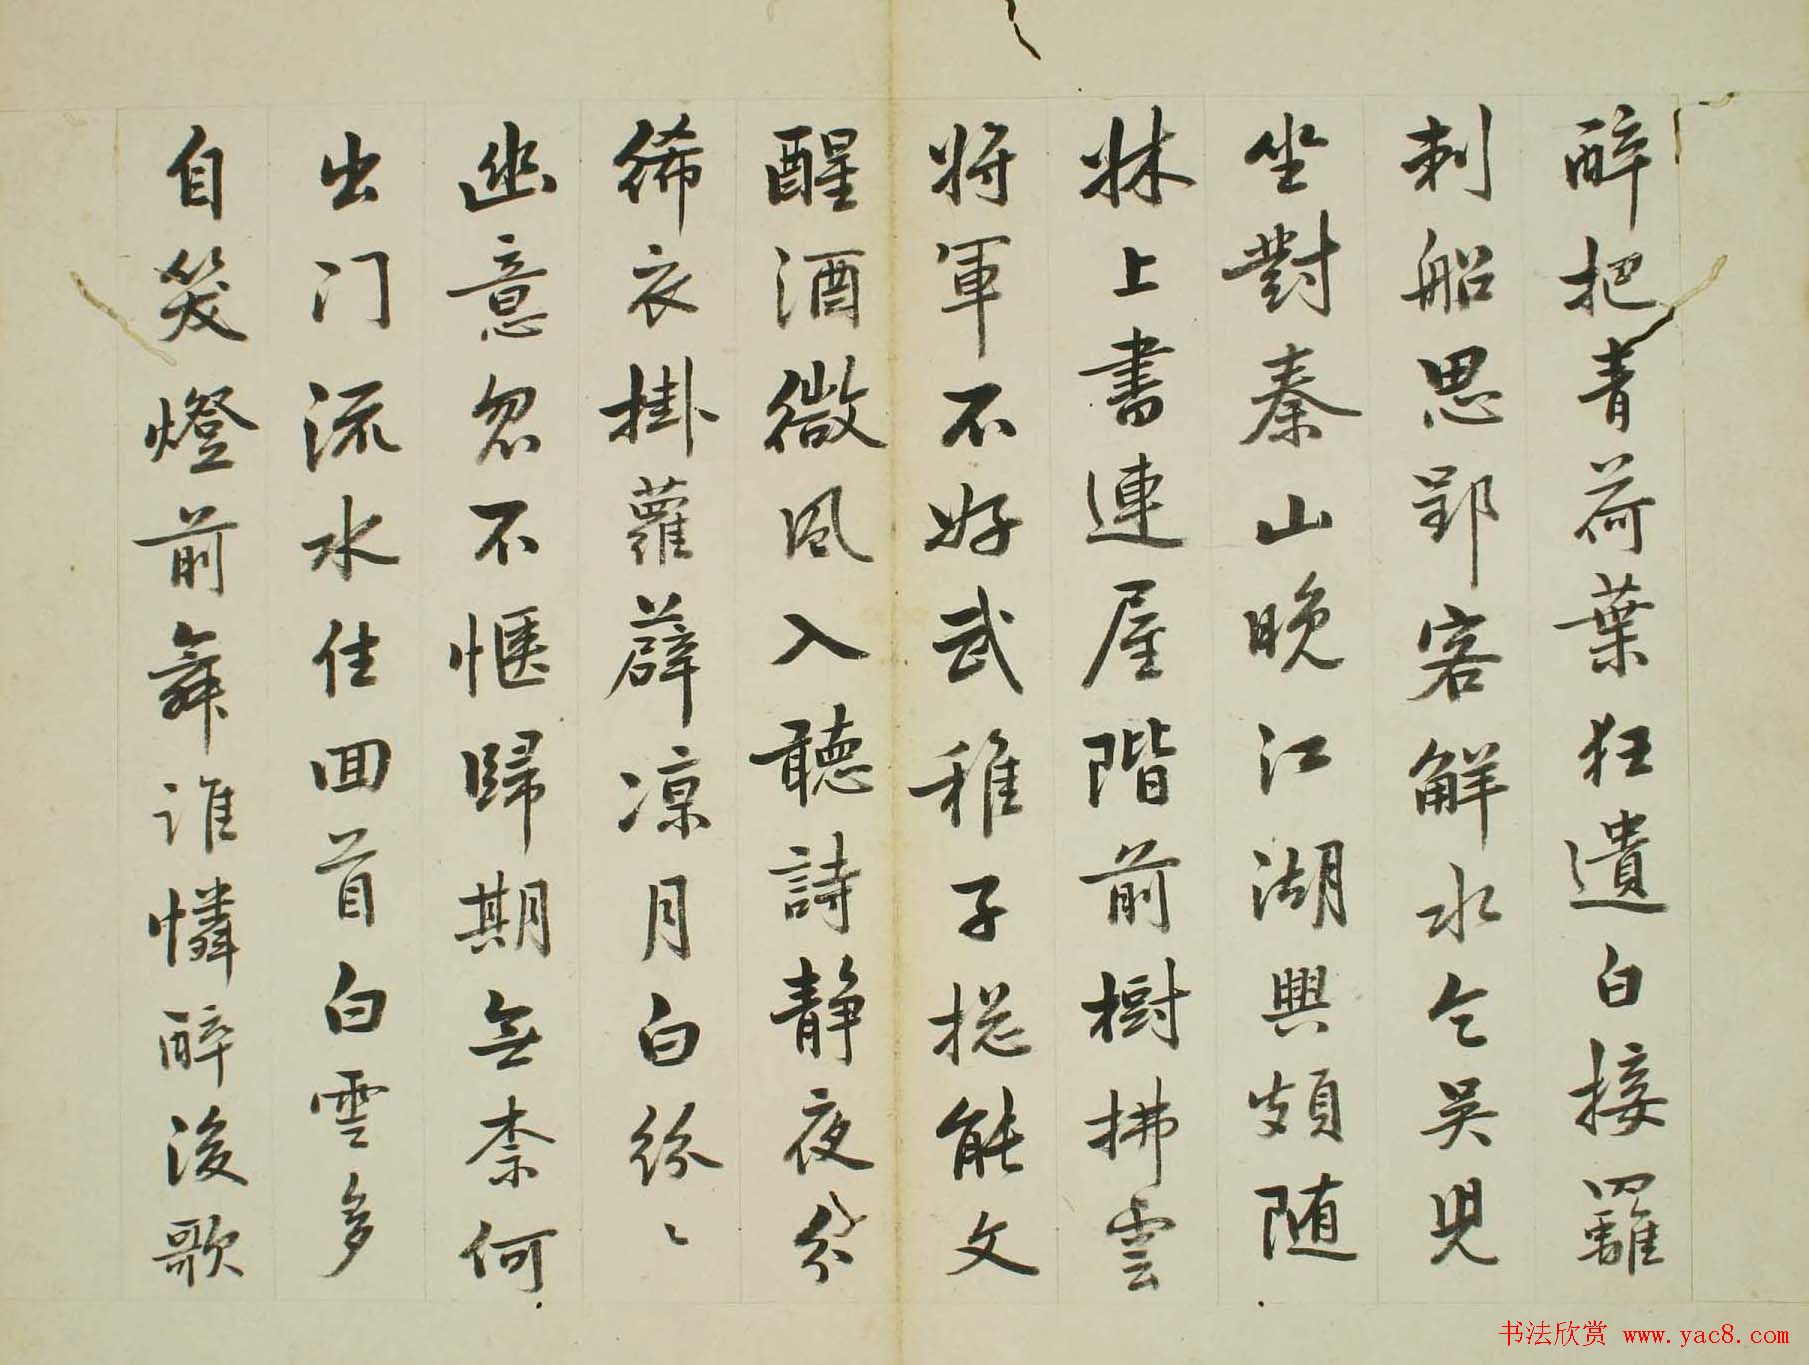 醉把青荷葉狂遺白接䍦
刺船思郢客解水乞吳兒
坐對秦山晚江湖興頗随
牀上書連屋階前樹拂雲
将軍不好武稚子揔能文
醒酒微風入聽詩静夜分
絺衣掛蘿薜凉月白紛〻
幽意忽不愜歸期無柰何
出门流水住回首白雲多
自笑燈前舞谁憐醉後歌
书法欣赏 www.yac8.com